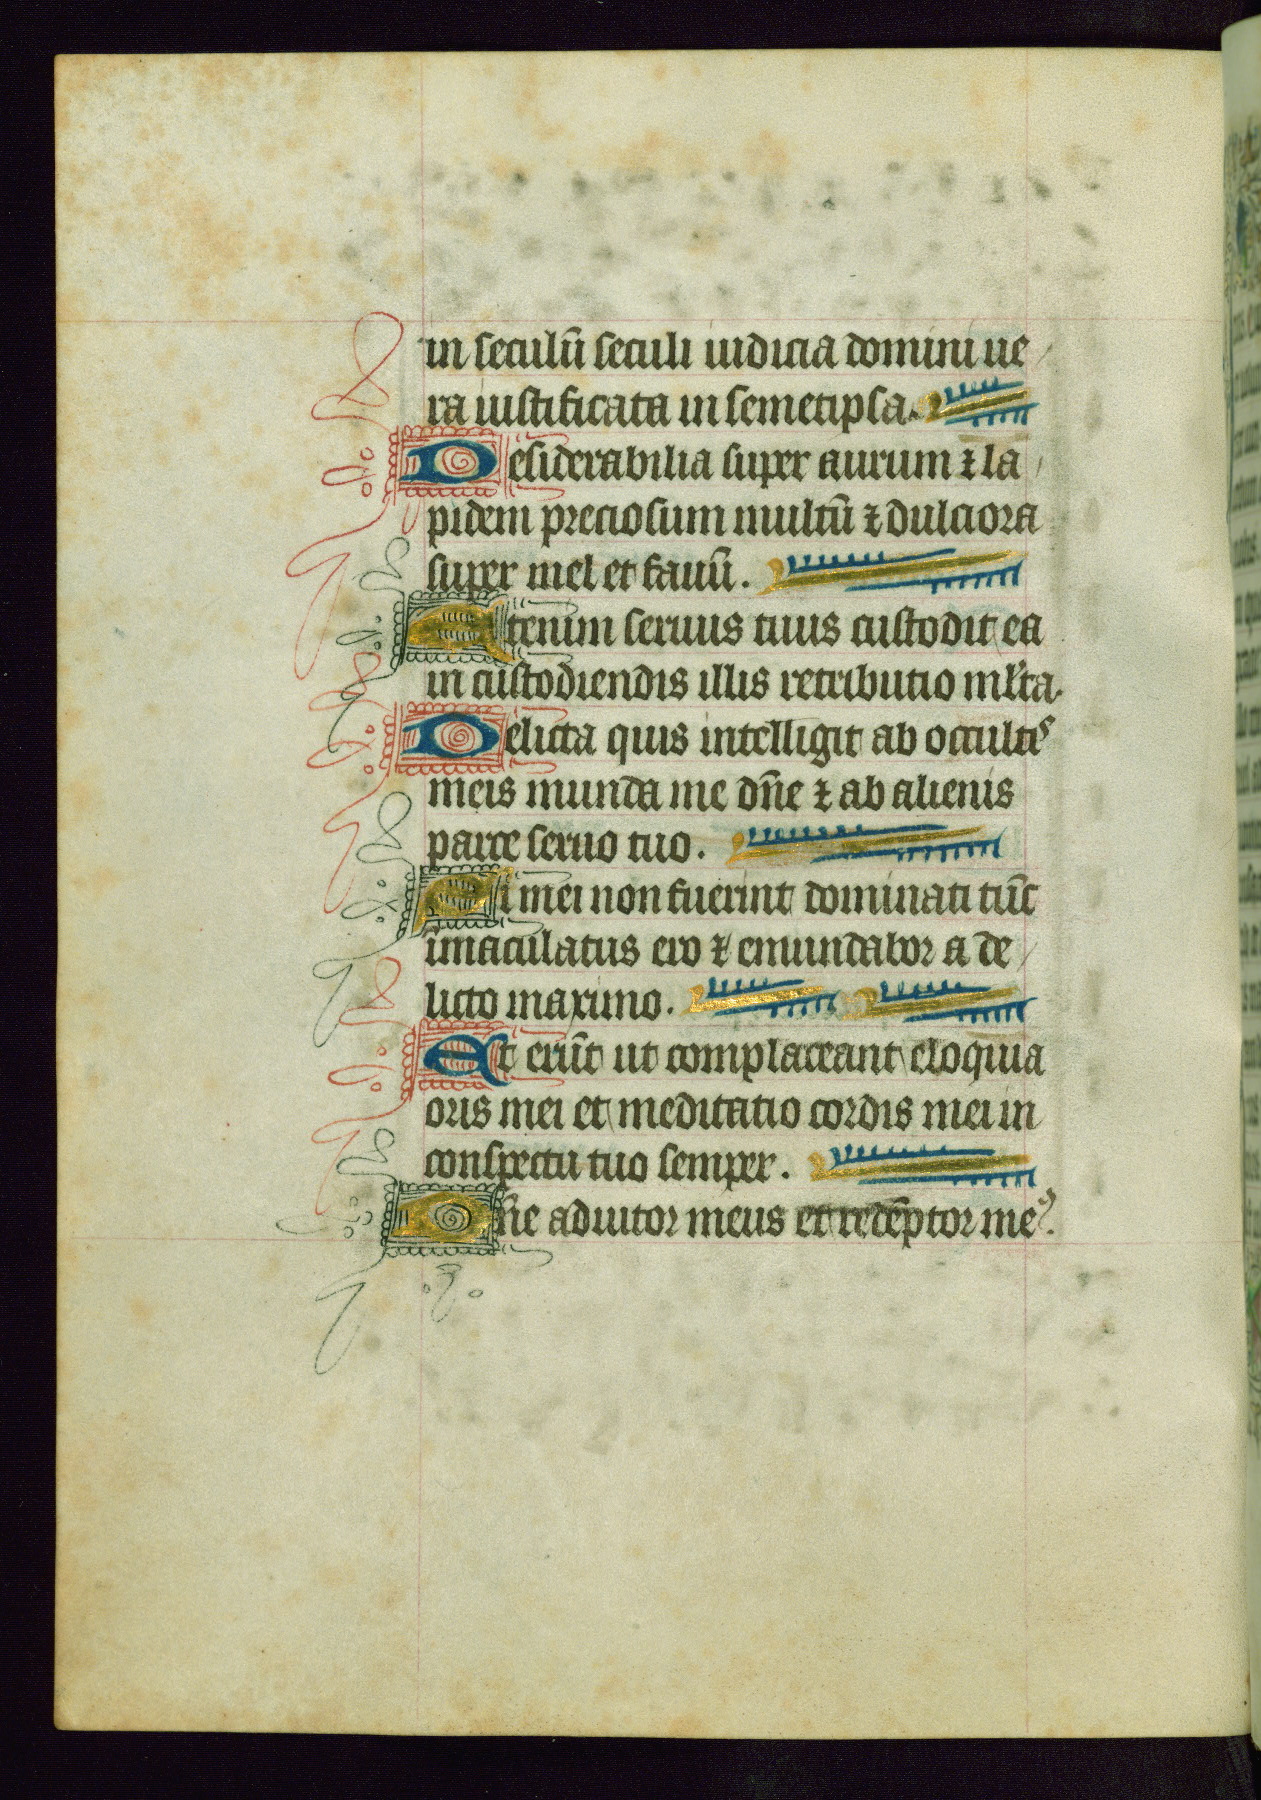 in seculū seculi iudicia domini ue
ra iustificata in semetipsa.
Desiderabilia super aurum ⁊ la
pidem preciosum multū ⁊ dulciora
super mel et fauū.
Etenim seruus tuus custodit ea
in custodiendis illis retributio ml̄ta.
Delicta quis intelligit ab occultis
meis munda me dn̄e ⁊ ab alienis
parce seruo tuo.
Si mei non fuerint dominati tūc
īmaculatus ero ⁊ emundabor a de
licto maximo.
Et erūt ut complaceant eloquia
oris mei et meditatio cordis mei in
conspectu tuo semper.
Dn̄e adiutor meus et redēptor meꝰ.